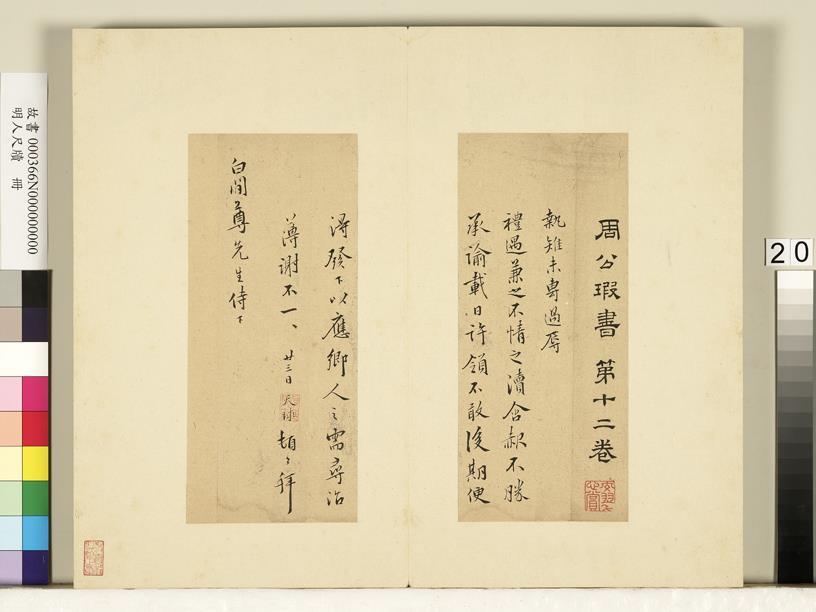 周公瑕書 第十二卷
執雉未專過辱
禮遇兼之不情之瀆含赧不勝
承諭載旧許領不敢後期便
得發下以應鄉人之需專治
薄謝不一、 廿三日 天球 頓々拜
白閒尊先生侍下
故書 000366N000000000
明人尺牘 冊
20